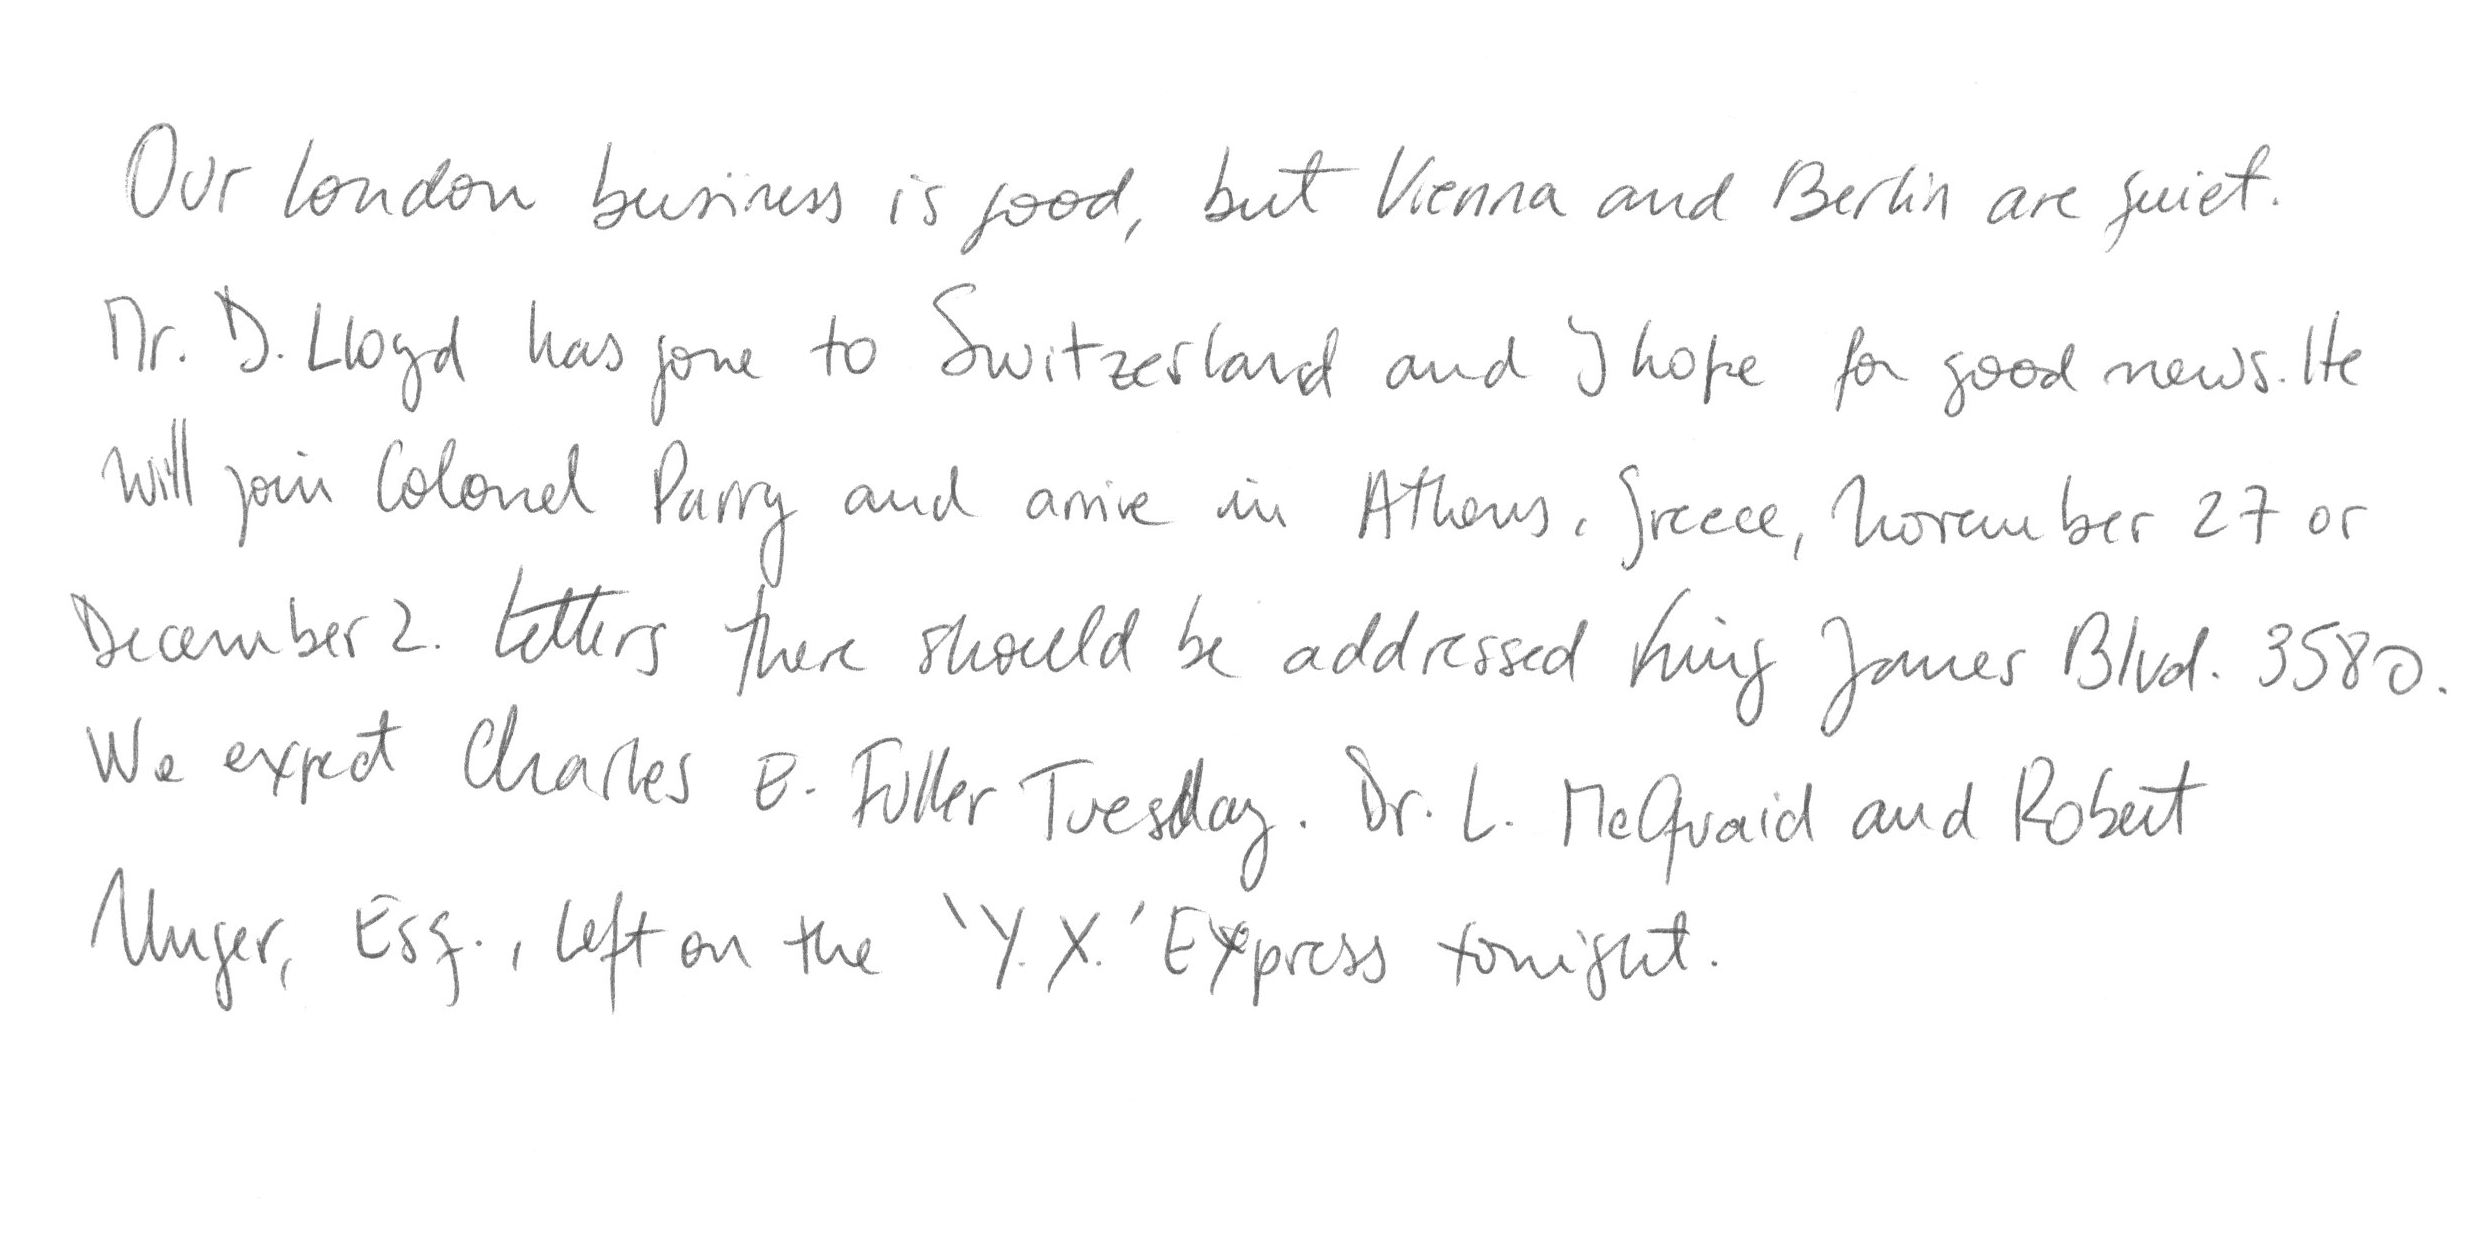 Our London business is good, but Vienna and Berlin are quiet.
Mr. D. Lloyd has gone to Switzerland and I hope for good news. He
will join Colonel Parry and arrive in Athens, Greece, November 27 or
December 2. Letters there should be addressed King James Blvd. 3580.
We expect Charles E. Fuller Tuesday. Dr. L. McQuaid and Robert
Unger, Esq., left on the 'Y.X.' Express tonight.